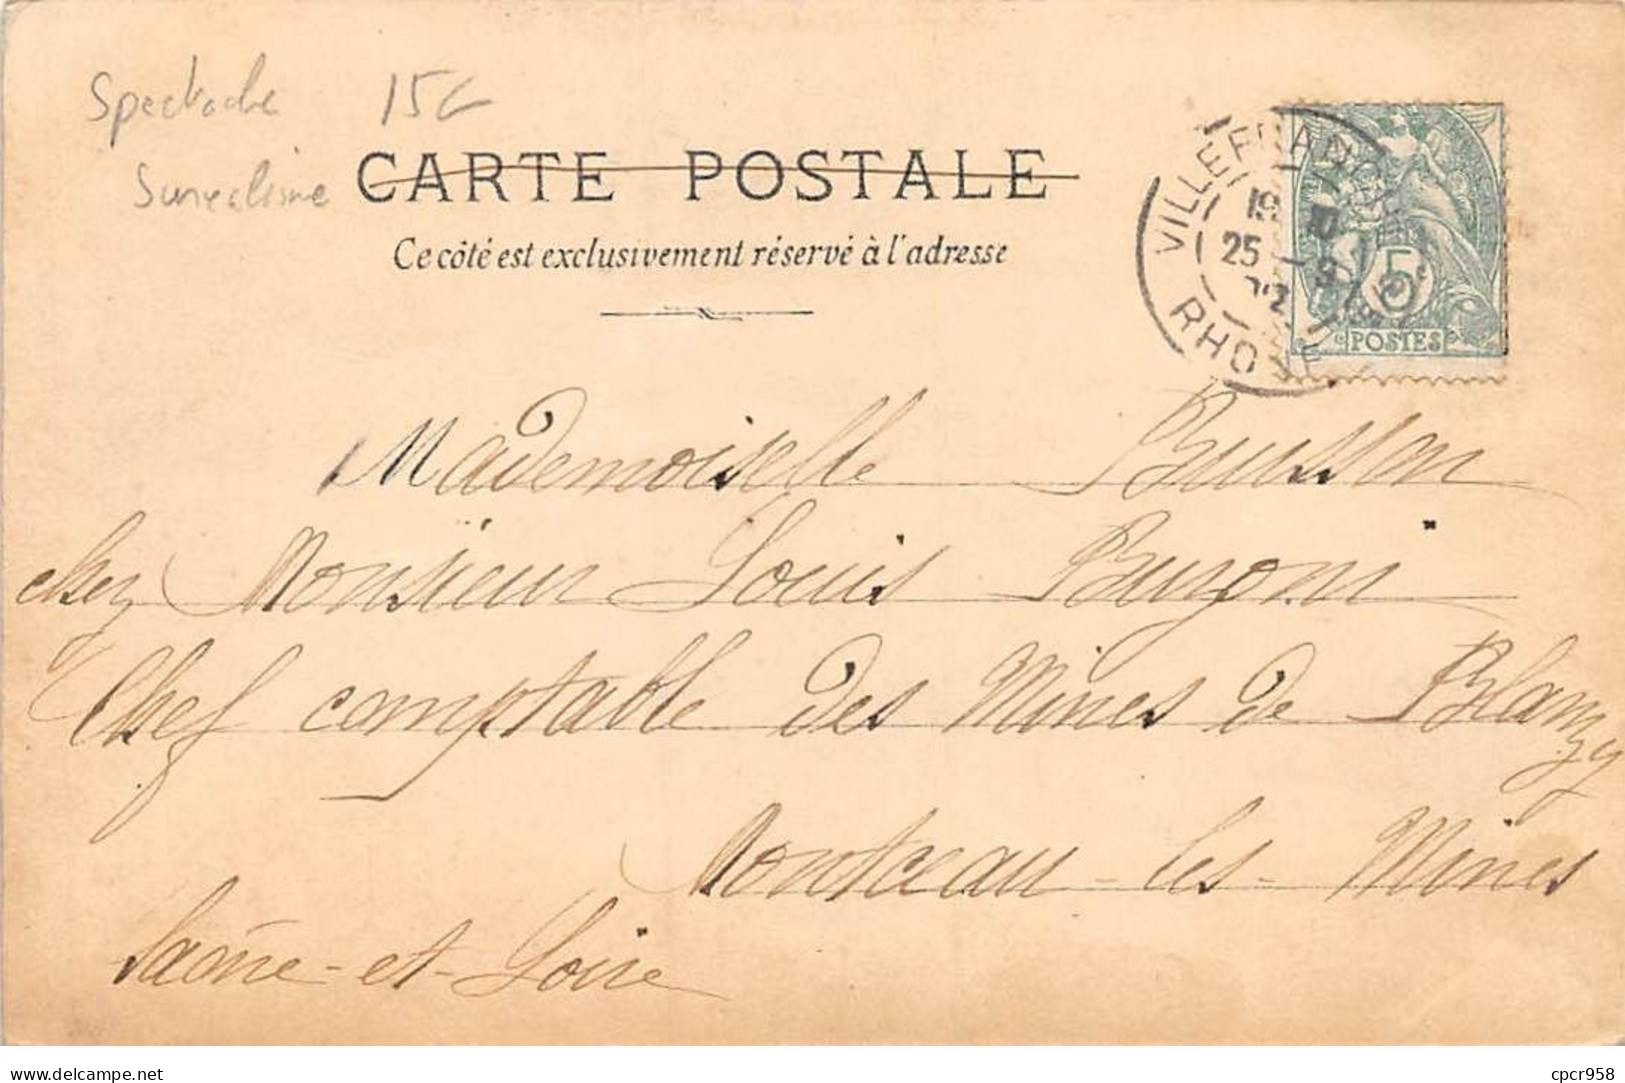 Spectacle 15€
Surréalisme
CARTE POSTALE
Ce côté est exclusivement réservé à l'adresse
VILLEFRANCHE
RHONE
25 - 9
5c
POSTES
Mademoiselle Buisson
chez Monsieur Louis Burgoni
Chef comptable des Mines de Blanzy
Montceau-les-Mines
Saône-et-Loire
cpcr958